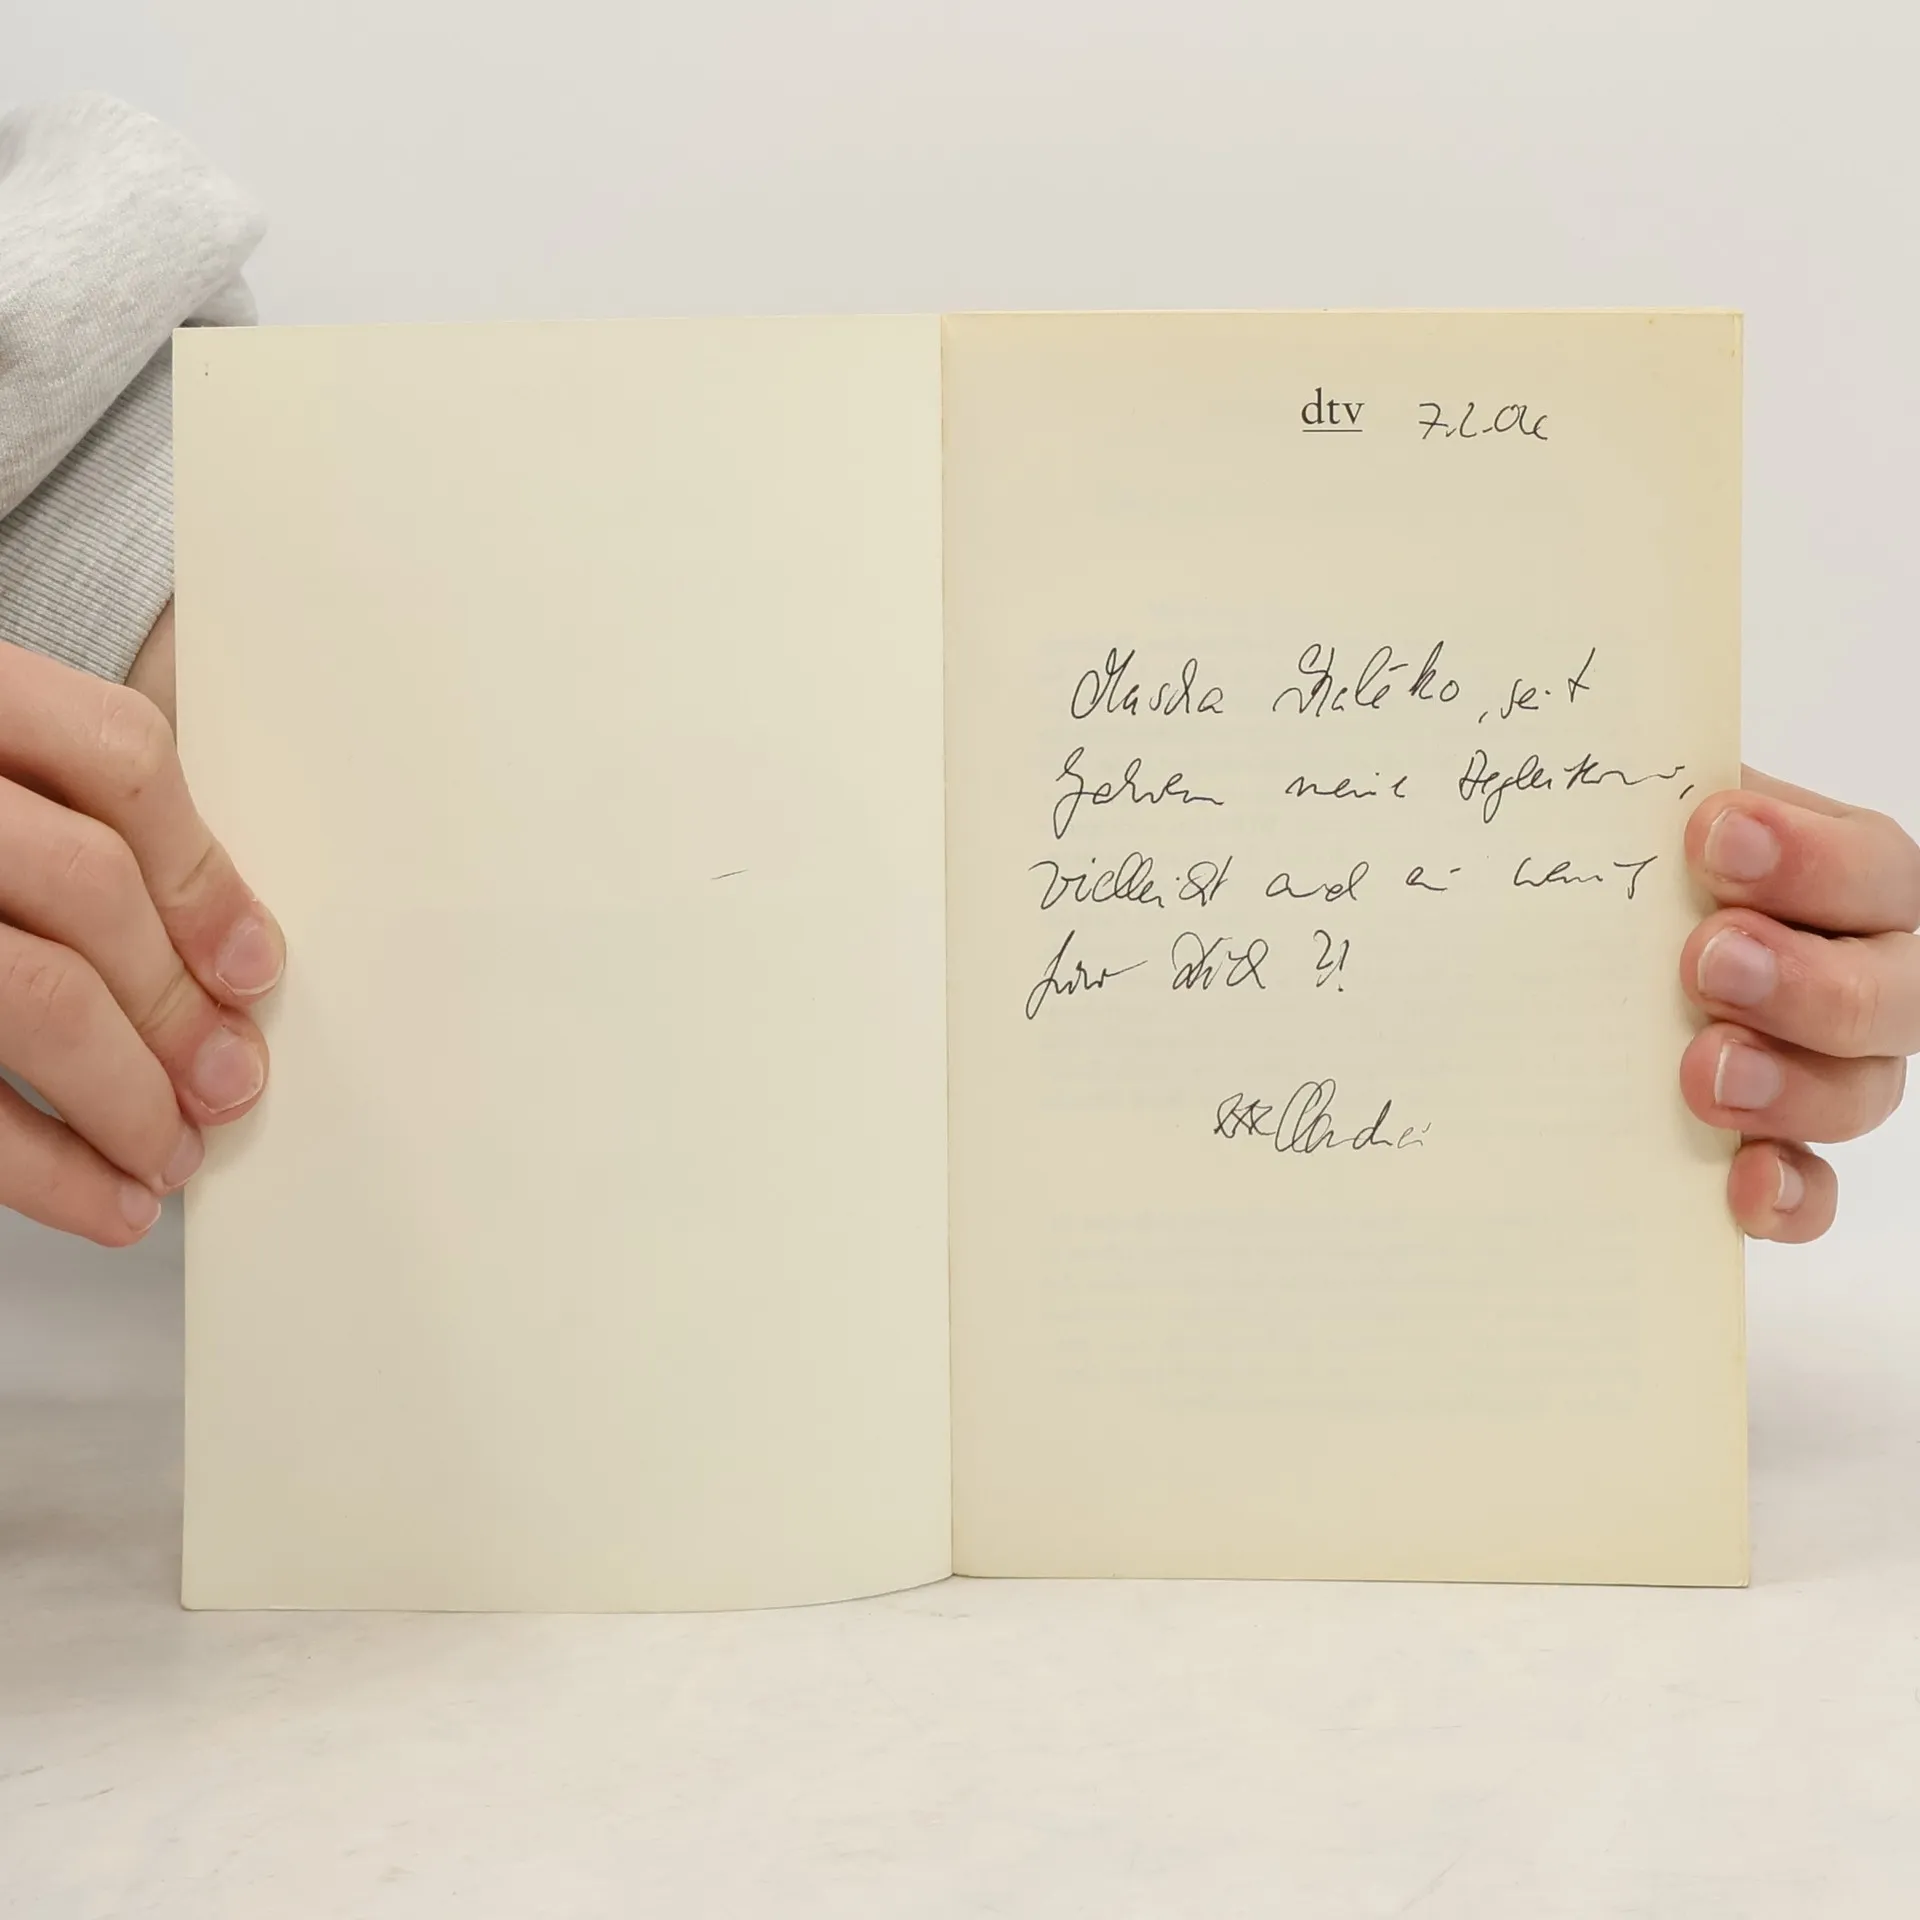 dtv 7.2.04
Mascha Kaléko, seit
Jahren meine Begleiterin,
vielleicht auch ein wenig
für Dich ?!